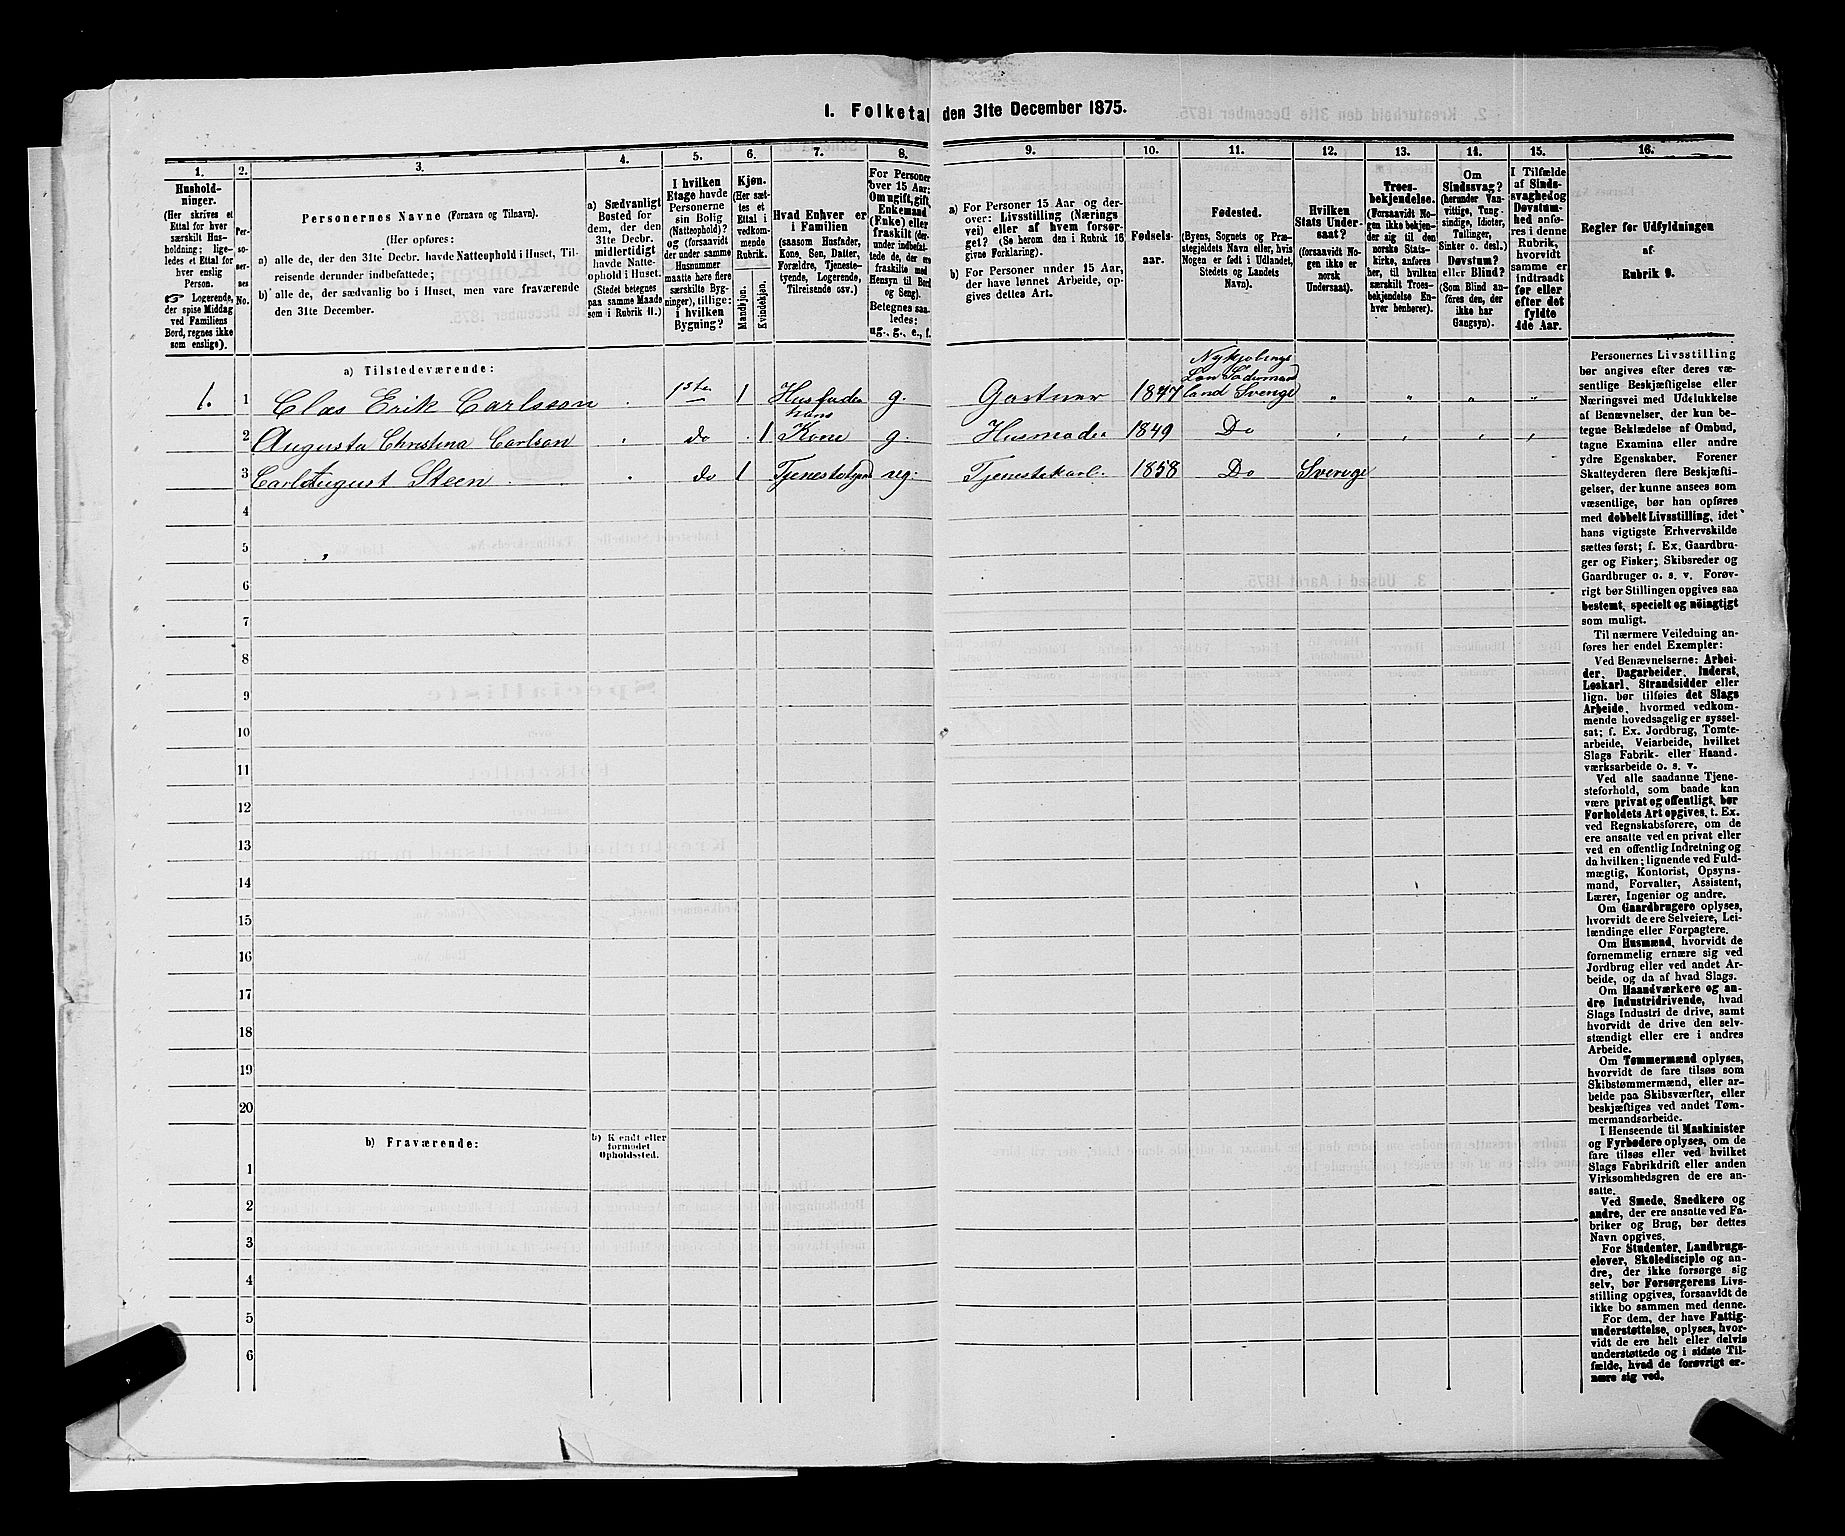 1. Folketal den 31te December 1875.
1.
Hushold-
ninger.
(Her skrives et
Ettal for hver
særskilt Hus-
holdning; lige-
ledes et Ettal for
hver enslig
Person.
☞ Logerende,
der spise Middag
ved Familiens
Bord, regnes ikke
som enslige).
2.
Per-
so-
ner-
nes
No.
3.
Personernes Navne (Fornavn og Tilnavn).
(Her opføres:
a) alle de, der den 31te Decbr. havde Natteophold i Huset, Til-
reisende derunder indbefattede;
b) alle de, der sædvanlig bo i Huset, men vare fraværende
den 31te December.
4.
a) Sædvanligt
Bosted for
dem, der den
31te Decbr.
midlertidigt
havde Natte-
ophold i Huset.
(Stedet betegnes
paa samme Maade
som i Rubrik 11.)
5.
I hvilken
Etage havde
Personerne
sin Bolig
(Natteophold)?
og (forsaavidt
der under samme
Husnummer
maatte høre flere
særskilte Byg-
ninger), tillige:
i hvilken
Bygning?
6.
Kjøn.
(Her sæt-
tes et
Ettal i
vedkom-
mende
Rubrik.
Mandkjøn.
Kvindekjøn.
7.
Hvad Enhver er
i Familien
(saasom Husfader,
Kone, Søn, Datter,
Forældre, Tjeneste-
tyende, Logerende,
Tilreisende osv.)
8.
For Personer
over 15 Aar:
Om ugift, gift,
Enkemand
(Enke) eller
fraskilt (der-
under indbefat-
tede de, der ere
fraskilte med
Hensyn til Bord
og Seng).
Betegnes saa-
ledes:
ug., g., e., f.
9.
a) For Personer 15 Aar og der-
over: Livsstilling (Nærings
vei) eller af hvem forsør-
get? (Se herom den i Rubrik 16
givne Forklaring).
b) For Personer under 15 Aar,
der have lønnet Arbeide, op-
gives dettes Art.
10.
Fødsels-
aar.
11.
Fødested.
(Byens, Sognets og Præ-
stegjeldets Navn eller, hvis
Nogen er født i Udlandet,
Stedets og Landets
Navn).
12.
Hvilken
Stats Under-
saat?
(forsaavidt No-
gen ikke er
norsk
Undersaat).
13.
Troes-
bekjendelse.
(Forsaavidt No-
gen ikke bekjen-
der sig til den
norske Stats-
kirke, anføres
her, til hvilken
særskilt Troes-
bekjendelse En-
hver henhører).
14.
Om
Sindssvag?
(herunder Van-
vittige, Tung-
sindige, Idioter,
Tullinger,
Sinker o. desl.)
Døvstum?
eller Blind?
(Som Blind an-
føres den, der
ikke har
Gangsyn).
15.
I Tilfælde
af Sinds-
svaghed og
Døvstum-
hed anfø-
res i denne
Rubrik,
hvorvidt
samme er
indtraadt
før eller
efter det
fyldte
4de Aar.
16.
Regler før Udfyldningen
af
Rubrik 9.
a) Tilstedeværende:
1. 1 Clas Erik Carlsson . 1ste 1 Husfader g. Gartner 1847 Nykjøbings Len Södermand land Sverige " " " "
2 Augusta Christina Carlson . do . 1 hans Kone g. Husmoder 1849 Do
3 Carl August Steen . do 1 Tjenestetyend ug: Tjenestekarl. 1858 Do Sverige
4
5
6
7
8
9
10
11
12
13
14
15
16
17
18
19
20
b) Fraværende:
b) Kjendt eller
formodet
Opholdssted.
1
2
3
4
5
6
Personernes Livsstilling
bør angives efter deres væ-
sentlige Beskjæftigelse eller
Næringsvei med Udelukkelse
af Benævnelser, der kun be-
tegne Beklædelse af Ombud,
tagne Examina eller andre
ydre Egenskaber. Forener
Skatteyderen flere Beskjæfti-
gelser, der kunne ansees som
væsentlige, bør han opføres
med dobbelt Livsstilling, idet
hans vigtigste Erhvervskilde
sættes først; f. Ex. Gaardbru-
ger og Fisker; Skibsreder og
Gaardbruger o. s. v. Forøv-
rigt bør Stillingen opgives saa
bestemt, specielt og nöiagtigt
som muligt.
Til nærmere Veiledning an-
føres her endel Exempler:
Ved Benævnelserne: Arbei-
der, Dagarbeider, Inderst,
Løskarl, Strandsidder eller
lign. bør tilføies det Slags
Arbeide, hvormed vedkom-
mende hovedsagelig er syssel-
sat; f. Ex. Jordbrug, Tomte-
arbeide, Veiarbeide, hvilket
Slags Fabrik- eller Haand-
værksarbeide o. s. v.
Ved alle saadanne Tjene-
steforhold, som baade kan
være privat og offentligt, bør
Forholdets Art opgives, t. Ex.
ved Regnskabsførere, om de
ere ansatte ved en privat eller
ved en offentlig Indretning og
da hvilken; lignende ved Fuld-
mægtig, Kontorist, Opsyns-
mand, Forvalter, Assistent,
Lærer, Ingeniør og andre.
Om Gaardbrugere oplyses,
hvorvidt de ere Selveiere, Lei-
lændinge eller Forpagtere.
Om Husmænd, hvorvidt de
fornemmelig ernære sig ved
Jordbrug eller ved andet Ar-
beide, og da af hvad Slags.
Om Haandværkere og an-
dre Industridrivende, hvad
Slags Industri de drive, samt
hvorvidt de drive den selv-
stændigt eller ere i andres
Arbeide.
Om Tømmermænd oplyses,
hvorvidt de fare tilsøs som
Skibstømmermænd, eller ar-
beide paa Skibsværfter, eller
beskjæftiges ved andet Tøm-
mermandsarbeide.
I Henseende til Maskinister
og Fyrbødere oplyses, om de
fare tilsøs eller ved hvilket
Slags Fabrikdrift eller anden
Virksomhedsgren de ere an-
satte.
Ved Smede, Snedkere og
andre, der ere ansatte ved Fa-
briker og Brug, bør dettes
Navn opgives.
For Studenter, Landbrugs-
elever, Skoledisciple og an-
dre, der ikke forsørge sig
selv, bør Forsørgerens Livs-
stilling opgives, forsaavidt de
ikke bo sammen med denne.
For dem, der have Fattig-
understøttelse, oplyses, hvor-
vidt de ere helt eller delvis
understøttede og i sidste Til-
fælde, hvad de forøvrigt er-
nære sig ved.